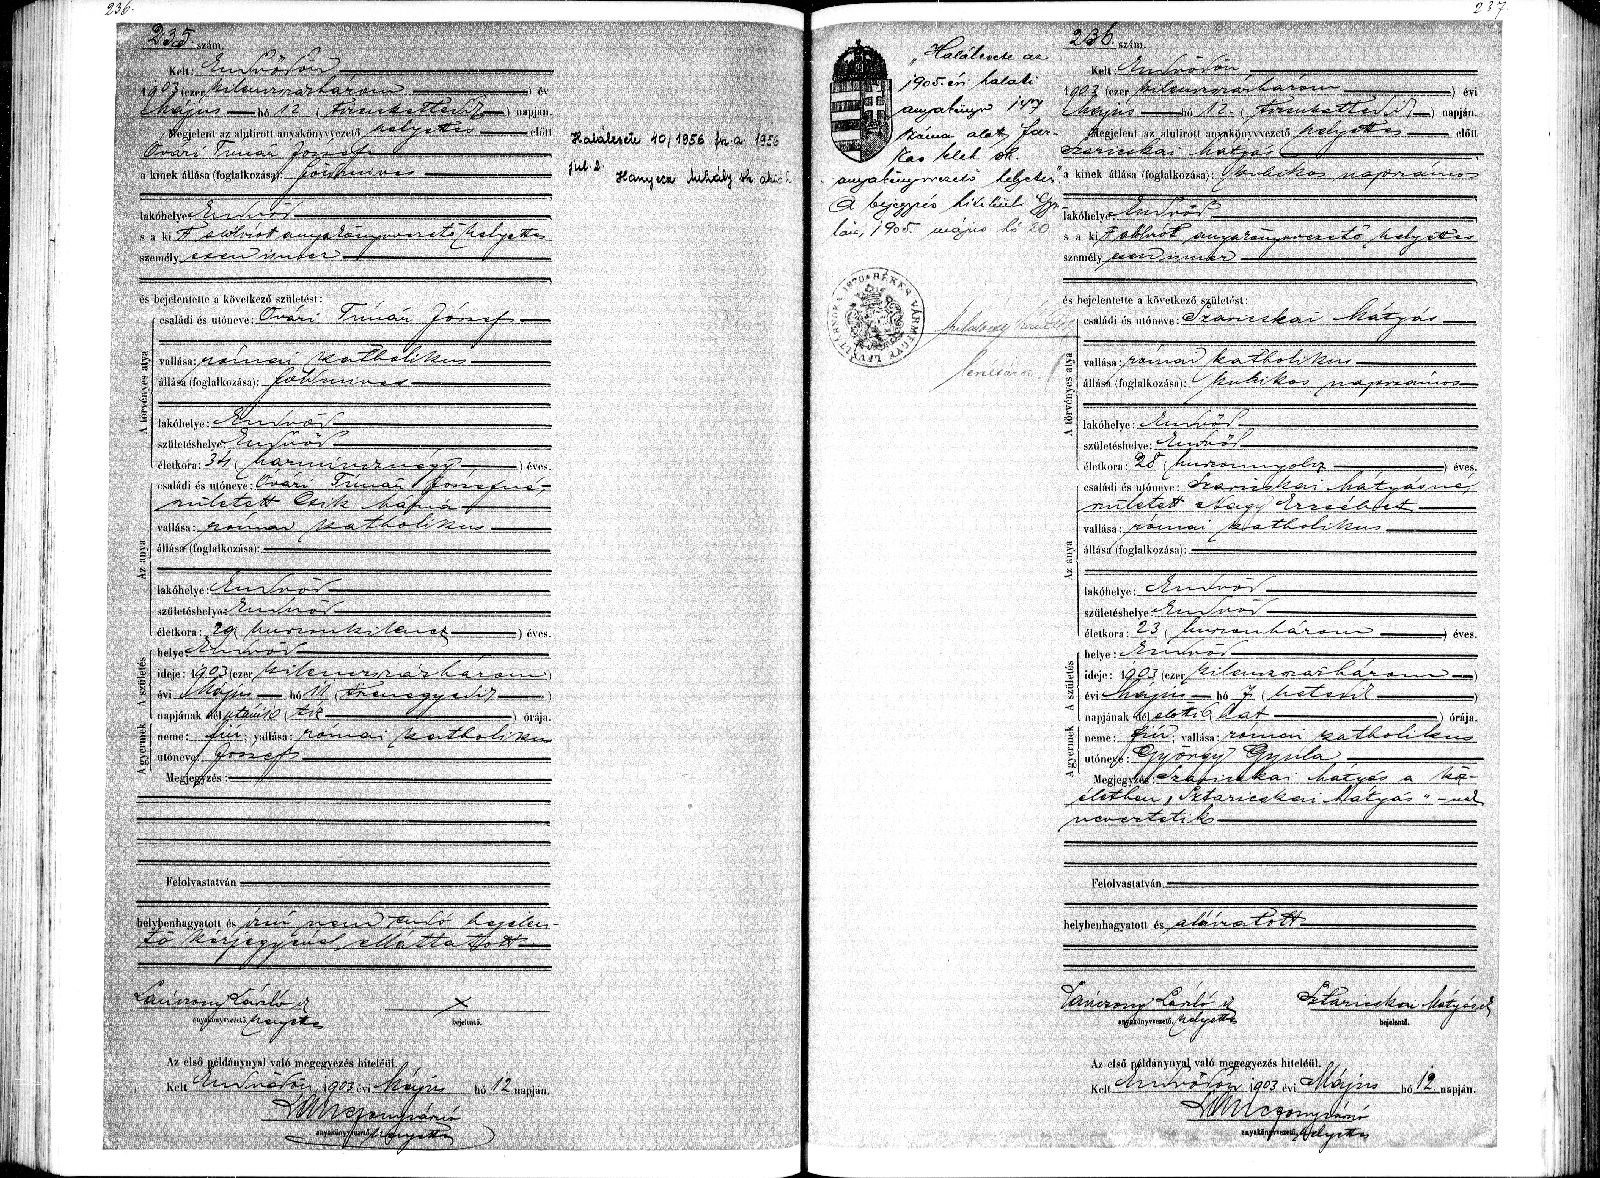 236.
235 szám.
Kelt: Endrődön
1903 (ezer kilenczszázhárom) év
Május hó 12 (tizenkettedik) napján.
Megjelent az alulirott anyakönyvvezető helyettes előtt
Óvári Timár József
a kinek állása (foglalkozása): földmíves
lakóhelye: Endrőd
s a ki t alulirott anyakönyvvezető helyettes
személyesen ismer
és bejelentette a következő születést:
A törvényes atya
családi és utóneve: Óvári Timár József
vallása: római katholikus
állása (foglalkozása): földmives
lakóhelye: Endrőd
születéshelye: Endrőd
életkora: 34 (harmincznégy) éves.
Az anya
családi és utóneve: Óvári Timár Józsefné,
született Csik Mária
vallása: római katholikus
állása (foglalkozása):
lakóhelye: Endrőd
születéshelye: Endrőd
életkora: 29 (huszonkilencz) éves.
A születés
helye: Endrőd
ideje: 1903 (ezer kilenczszázhárom)
évi Május hó 11 (tizenegyedik)
napjának dél utáni 10 (tiz) órája.
A gyermek
neme: fiú; vallása: római katholikus
utóneve: József
Megjegyzés:
Felolvastatván
helybenhagyatott és írni nem tudó bejelen-
tő kézjegyével elláttatott
Lánczony László
anyakönyvvezető, helyettes
x
bejelentő.
Az első példánynyal való megegyezés hiteléül.
Kelt Endrődön 1903 évi Május hó 12 napján.
anyakönyvvezető helyettes
Halálesete 10/1956 fn. a 1956
jul 2
Hanyecz Mihály sk
237
„Halálesete az
1905. évi halálti
anyakönyv 147
száma alatt Far-
kas helet sk.
anyakönyvvezető helyettes"
A bejegyzés hiteléül Gyu-
lán, 1905. május hó 20.
BÉKÉS VÁRMEGYE LEVÉLTÁRNOKA 1870
levéltárnok
236 szám.
Kelt Endrődön
1903 (ezer kilenczszázhárom) évi
Május hó 12. (tizenkettedik) napján.
Megjelent az alulirott anyakönyvvezető helyettes előtt
Szaricskai Mátyás
a kinek állása (foglalkozása): kubikos napszámos
lakóhelye: Endrőd
s a ki t alulirott anyakönyvvezető helyettes
személyesen ismer
és bejelentette a következő születést:
A törvényes atya
családi és utóneve: Szaricskai Mátyás
vallása: római katholikus
állása (foglalkozása): kubikos napszámos
lakóhelye: Endrőd
születéshelye: Endrőd
életkora: 28 (huszonnyolcz) éves.
Az anya
családi és utóneve: Szaricskai Mátyásné,
született Nagy Erzsébet
vallása: római katholikus
állása (foglalkozása):
lakóhelye: Endrőd
születéshelye: Endrőd
életkora: 23 (huszonhárom) éves.
A születés
helye: Endrőd
ideje: 1903 (ezer kilenczszázhárom)
évi Május hó 7 (hetedik)
napjának dél előtti 6 hat órája.
A gyermek
neme: fiú vallása: római katholikus
utóneve: György Gyula
Megjegyzés: Szaricskai Mátyás a köz-
életben „Sztaricskai Mátyás"-nak
neveztetik
Felolvastatván,
helybenhagyatott és aláíratott
Lánczony László
anyakönyvvezető, helyettes
Sztaricskai Mátyás
bejelentő.
Az első példánynyal való megegyezés hiteléül.
Kelt Endrődön 1903 évi Május hó 12 napján.
anyakönyvvezető, helyettes